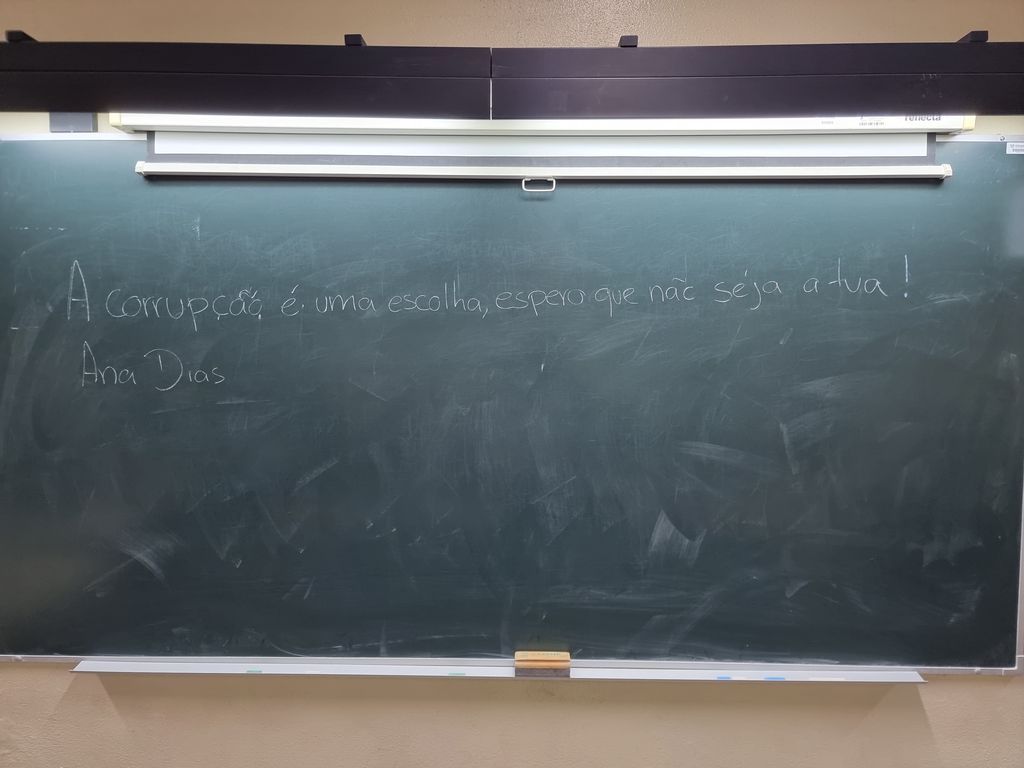 reflecta
A corrupção é uma escolha, espero que não seja a tua!
Ana Dias